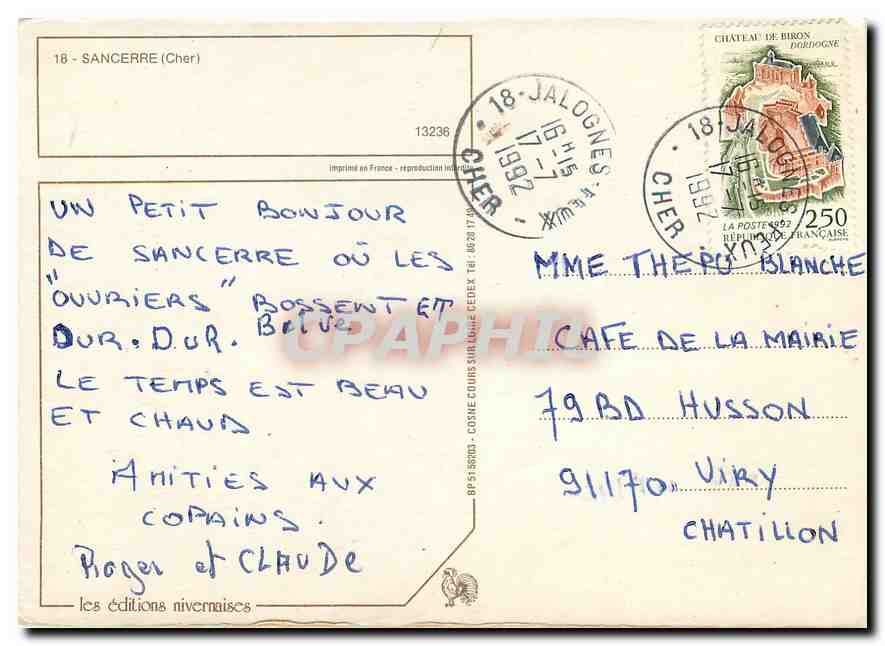 18 - SANCERRE (Cher)
13236
imprimé en France - reproduction interdite
UN PETIT BONJOUR
DE SANCERRE OÙ LES
"OUVRIERS" BOSSENT ET
DUR. DUR.
LE TEMPS EST BEAU
ET CHAUD.
AMITIES AUX
COPAINS.
Roger et CLAUDE
les éditions nivernaises
BP 51 58203 - COSNE COURS SUR LOIRE CEDEX Tél : 86 28 17 49
CPAPHIL
18-JALOGNES
16H15
17-7
1992
CHER
CHÂTEAU DE BIRON
DORDOGNE
LA POSTE 1992
2,50
RÉPUBLIQUE FRANÇAISE
18-JALOGNES
16H15
17-7
1992
CHER
MME THEPU BLANCHE
CAFE DE LA MAIRIE
79 BD HUSSON
91170 VIRY
CHATILLON